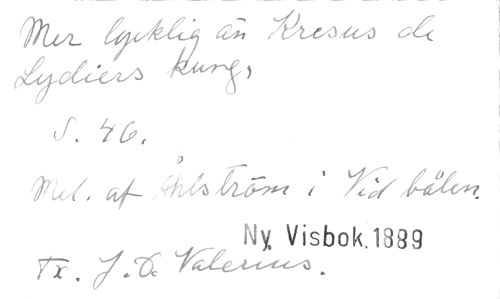 Mer lycklig än Kresus de
Lydiers kung,
S. 46.
Mel. af Åhlström i Vid bålen.
Ny. Visbok. 1889
Tx. J. D. Valerius.